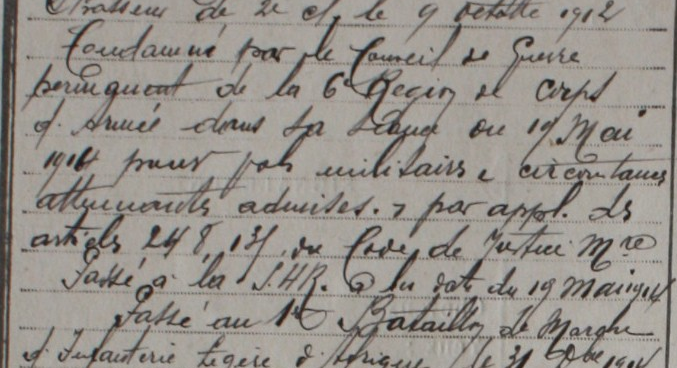 Chasseur de 2e cl. le 9 octobre 1912
Condamné par le Conseil de Guerre
permanent de la 6e Région de Corps
d'Armée dans sa séance du 19 Mai
1914 pour vol militaire circonstances
atténuantes admises. par appl. des
articles 248, du Code de Justice Mre
Passé à la S.H.R. à la date du 19 Mai 1914
Passé au 1er Bataillon de Marche
d'Infanterie légère d'Afrique le 31 Xbre 1914